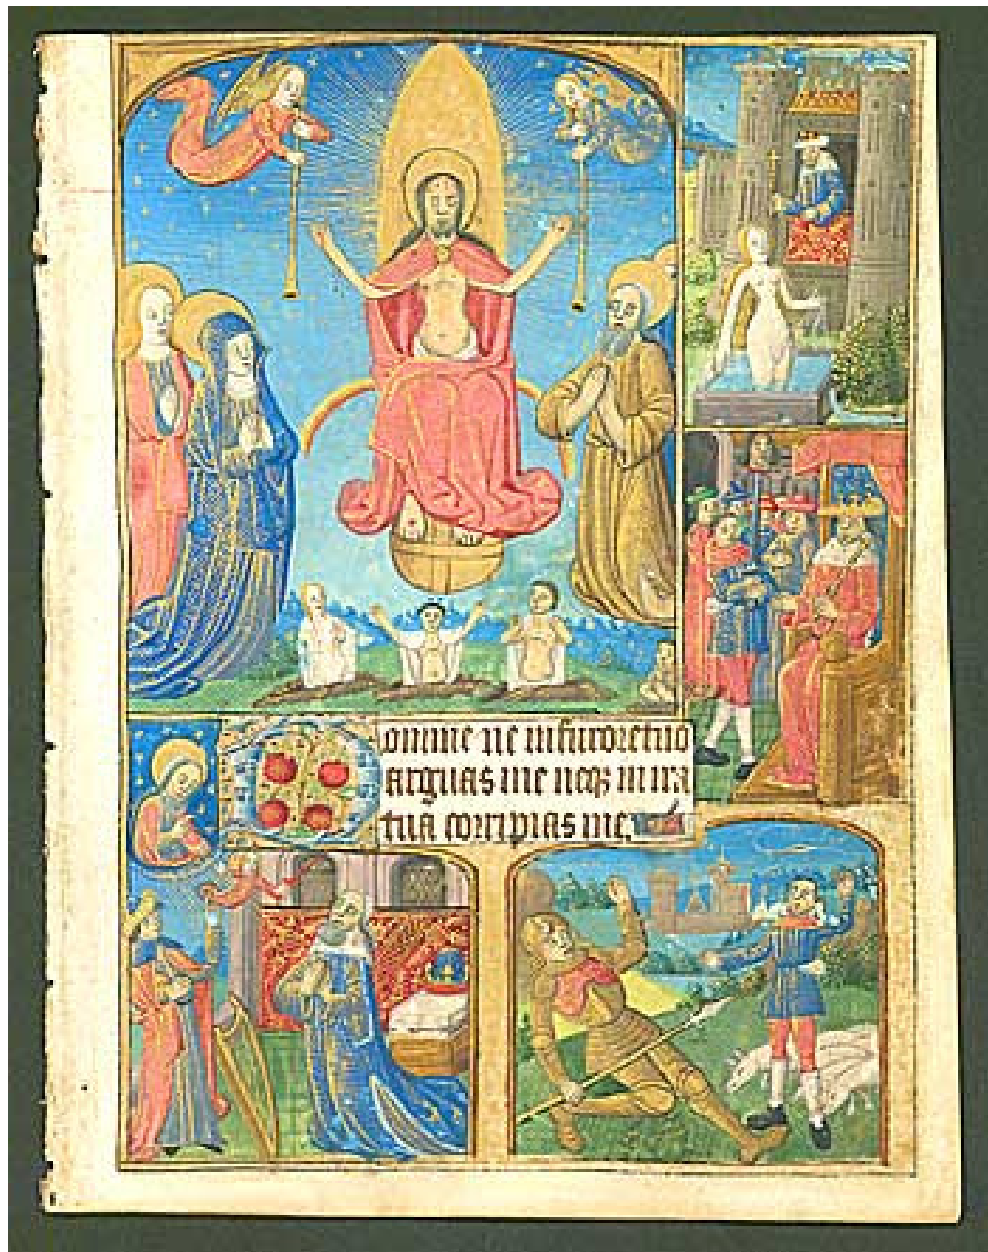 omine ne in furore tuo
arguas me neqȝ in ira
tua corripias me.